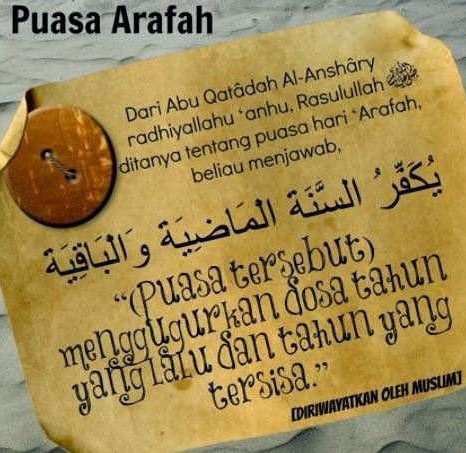 Puasa Arafah
Dari Abu Qatâdah Al-Anshâry
radhiyallahu ‘anhu, Rasulullah ﷺ
ditanya tentang puasa hari ‘Arafah,
beliau menjawab,
يُكَفِّرُ السَّنَةَ المَاضِيَةَ وَالبَاقِيَةَ
“(Puasa tersebut)
menggugurkan dosa tahun
yang lalu dan tahun yang
tersisa.”
[DIRIWAYATKAN OLEH MUSLIM]